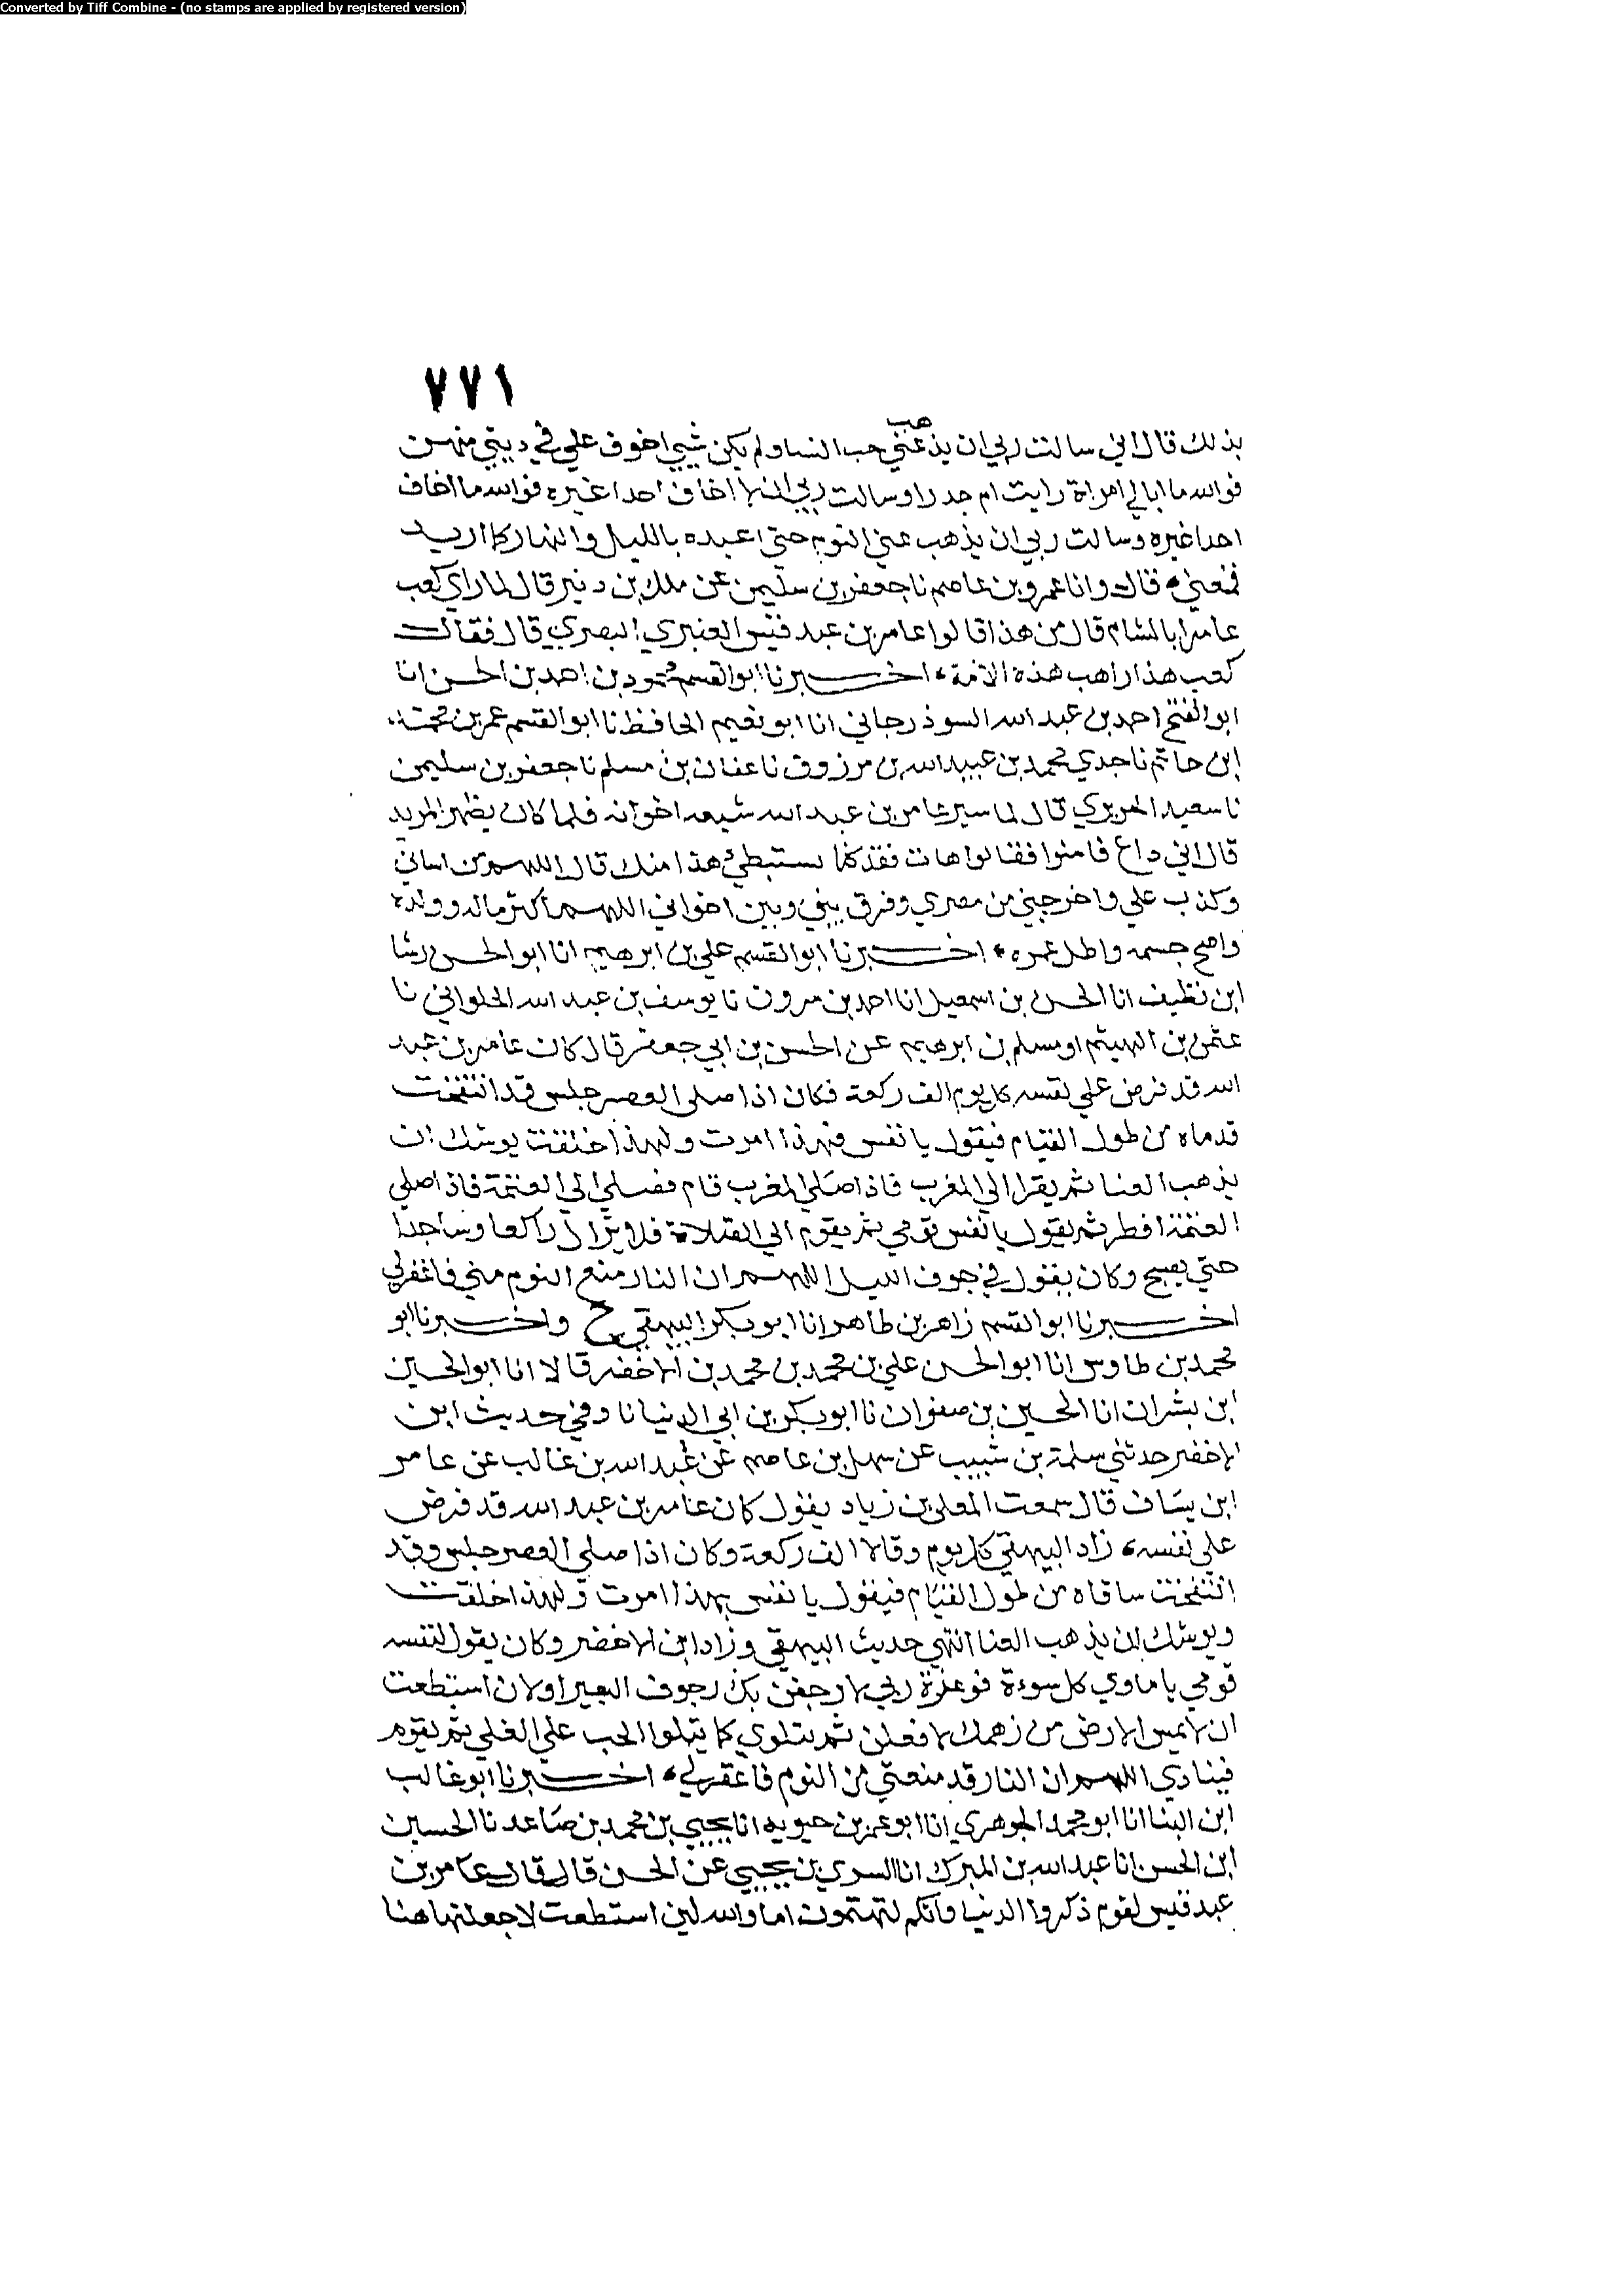 Converted by Tiff Combine - (no stamps are applied by registered version)
٧٧١
هب
بذلك قال اني سالت ربي ان يذ عني حب النسا ولم يكن شيي اخوف علي في ديني منهن
فوالله ما ابالي امراة رايت ام جدرا وسالت ربي ان لا اخاف احدا غيره فوالله ما اخاف
احدا غيره وسالت ربي ان يذهب عني النوم حتي اعبده بالليل والنهار كما اريد
فمنعني قال وانا عمرو بن عاصم نا جعفر بن سليمن عن ملك بن دنير قال لما راي كعب
عامرا بالشام قال من هذا قالوا عامر بن عبد قيس العنبري البصري قال فقال
كعب هذا راهب هذه الامة اخبرنا ابو القسم محمود بن احمد بن الحسن انا
ابو الفتح احمد بن عبد الله السوذرجاني انا ابو نعيم الحافظ نا ابو القسم عمر بن محمد
ابن حاتم نا جدي محمد بن عبيد الله بن مرزوق نا عفان بن مسلم نا جعفر بن سليمن
نا سعيد الجريري قال لما سير عامر بن عبد الله شيعه اخوانه فلما كان بظهر المربد
قال اني داع فامنوا فقالوا هات فقد كنا نستبطئ هذا منك قال اللهم من اساني
وكذب علي واخرجني من مصري وفرق بيني وبين اخواني اللهم اكثر ماله وولده
واصح جسمه واطل عمره اخبرنا ابو القسم علي بن ابرهيم انا ابو الحسن رشا
ابن نظيف انا الحسن بن اسمعيل انا احمد بن مرون نا يوسف بن عبد الله الحلواني نا
عثمن بن الهيثم او مسلم بن ابرهيم عن الحسن بن ابي جعفر قال كان عامر بن عبد
الله قد فرض علي نفسه كل يوم الف ركعة فكان اذا صلي العصر جلس قد انتفخت
قدماه من طول القيام فيقول يا نفس فبهذا امرت ولهذا خلقت يوشك ان
يذهب العنا ثم يقرا الي المغرب فاذا صلي المغرب قام فصلي الي العتمة فاذا صلي
العتمة افطر ثم يقول يا نفس قومي ثم يقوم الي الصلاة فلا يزال راكعا وساجدا
حتي يصبح وكان يقول في جوف الليل اللهم ان النار منع النوم مني فاغفر لي
اخبرنا ابو القسم زاهر بن طاهر انا ابو بكر البيهقي ح واخبرنا ابو
محمد بن طاوس انا ابو الحسن علي بن محمد بن محمد بن الاخضر قالا انا ابو الحسين
ابن بشران انا الحسين بن صفوان نا ابو بكر بن ابي الدنيا نا وفي حديث ابن
الاخضر حدثني سلمة بن شبيب عن سهل بن عاصم عن عبد الله بن غالب عن عامر
ابن يساف قال سمعت المعلي بن زياد يقول كان عامر بن عبد الله قد فرض
علي نفسه زاد البيهقي كل يوم وقالا الف ركعة وكان اذا صلي العصر جلس وقد
انتفخت ساقاه من طول القيام فيقول يا نفس بهذا امرت ولهذا خلقت
ويوشك ان يذهب العنا انتهي حديث البيهقي وزاد ابن الاخضر وكان يقول لنفسه
قومي يا ماوي كل سوءة فوعزة ربي لارجفن بك رجوف البعير اولان استطعت
ان لا يمس الارض من زهمك لافعلن ثم يتلوي كما يتلوا الحب علي المقلي ثم يقوم
فينادي اللهم ان النار قد منعتني من النوم فاغفر لي اخبرنا ابو غالب
ابن البنا انا ابو محمد الجوهري انا ابو عمر بن حيويه انا يحيي بن محمد بن صاعد نا الحسين
ابن الحسن انا عبد الله بن المبرك انا السري بن يحيي عن الحسن قال قال عامر بن
عبد قيس لقوم ذكروا الدنيا وانكم لتهتمون اما والله لين استطعت لاجعلنها هنا